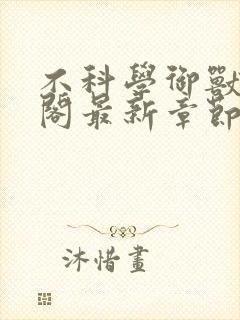 不科學御獸
閣最新章節
沐惜畫